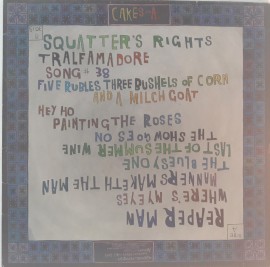 CAKED-A-
SQUATTER'S RIGHTS
TRALFAMADORE
SONG # 38
FIVE RUBLES THREE BUSHELS OF CORN
AND A MILCH GOAT
HEY HO
PAINTING THE ROSES
REAPER MAN
WHERE'S MY EYES
MANNERS MAKETH THE MAN
THE BLUESY ONE
LAST OF THE SUMMER WINE
THE SHOW GOES ON